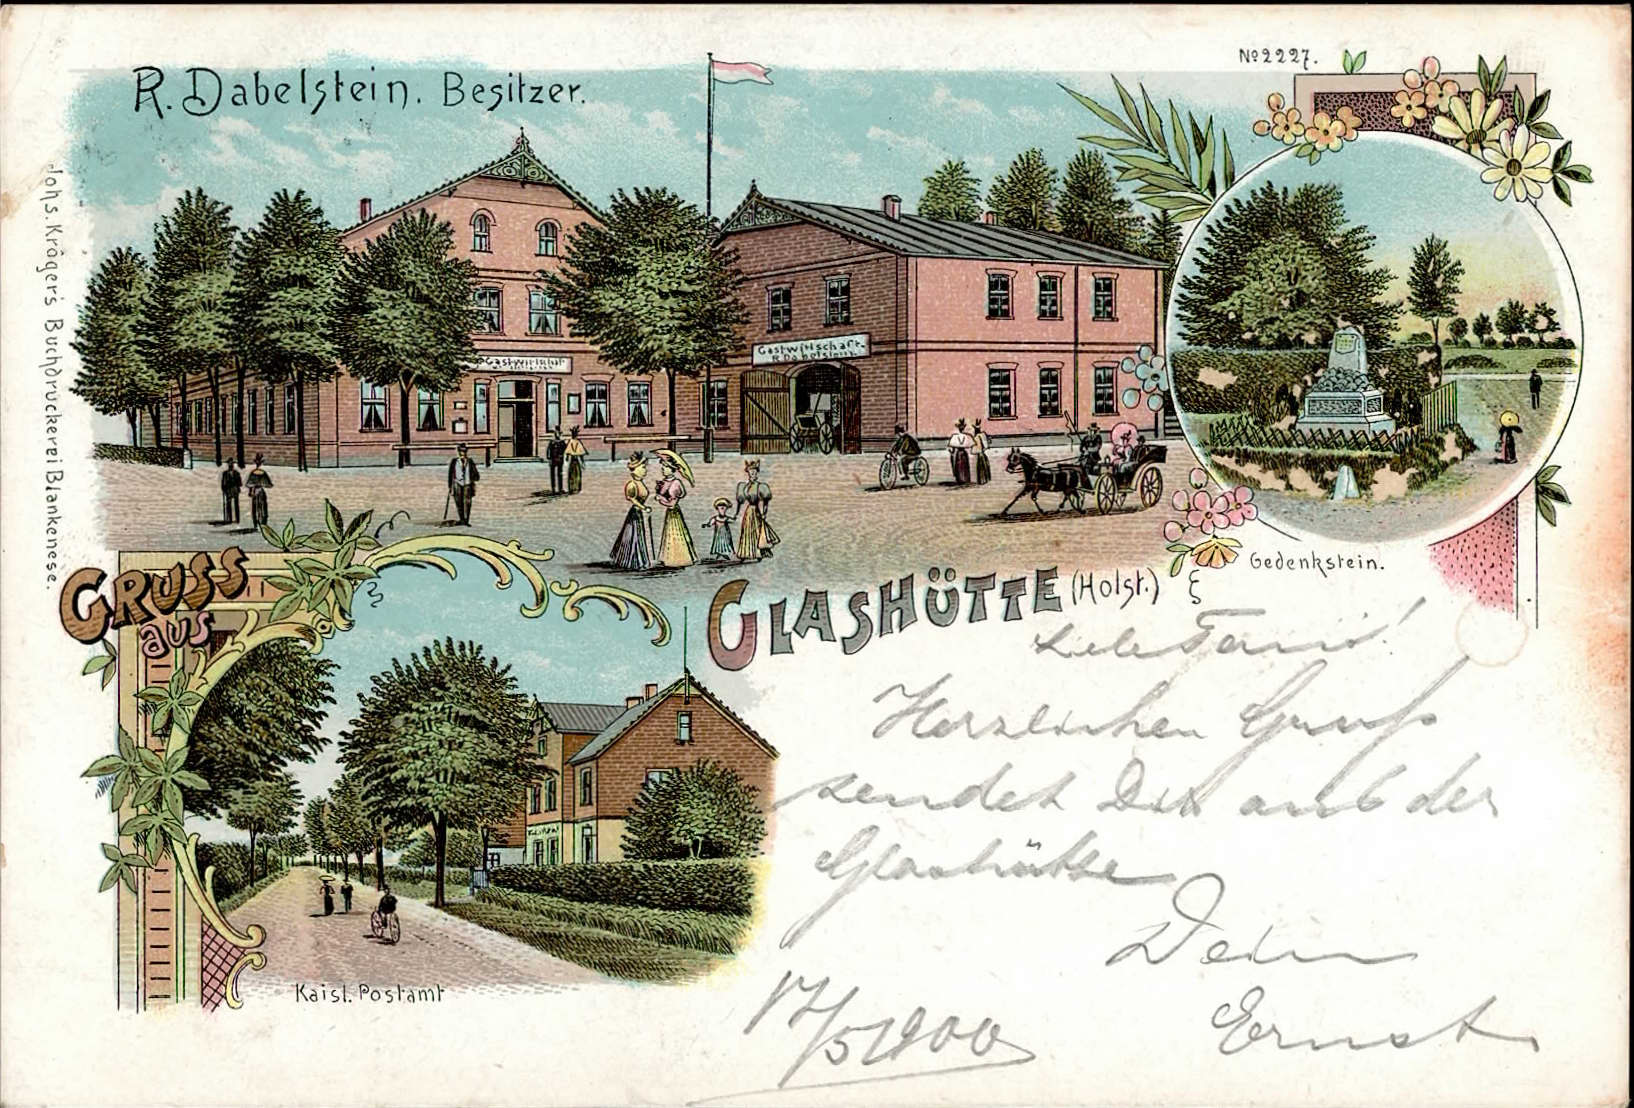 No 2227.
R. Dabelstein. Besitzer.
Johs. Krögers Buchdruckerei Blankenese.
Gastwirtschaft
Gastwirtschaft
R. Dabelstein
Gedenkstein.
GRUSS
aus
GLASHÜTTE (Holst.)
Herzlichen Gruß
sendet Dir aus der
Glashütte
Dein
Ernst.
17/5 1900
Kaisl. Postamt